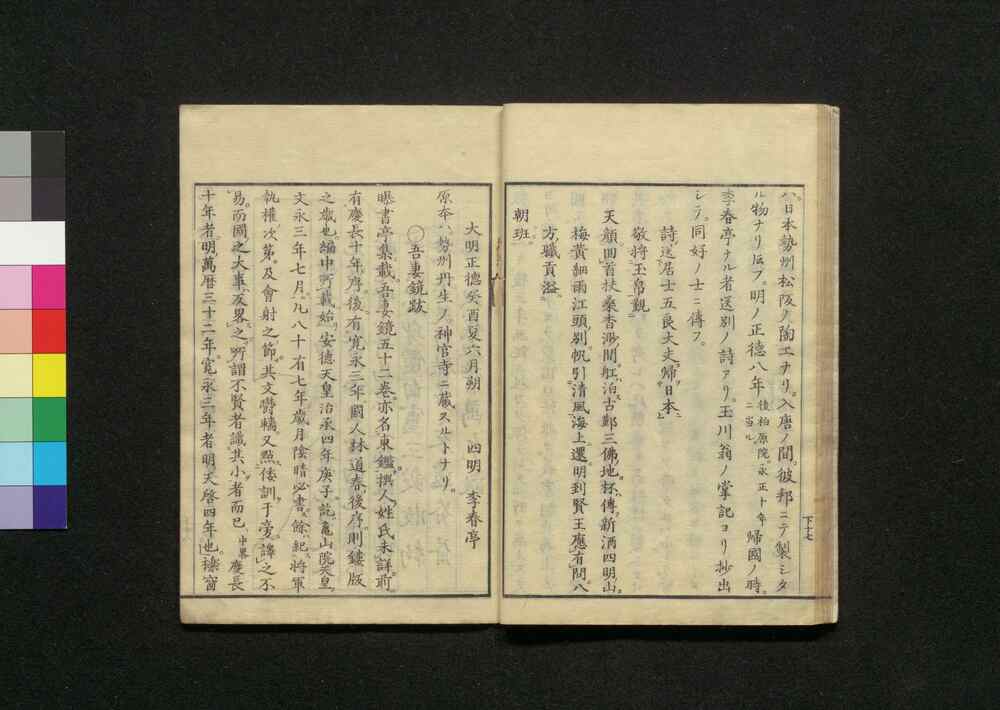 ハ日本勢州松阪ノ陶工ナリ。入唐ノ間。彼邦ニテ製シタ
ル物ナリト伝フ。明ノ正德八年後柏原院永正十年ニ当ル帰國ノ時。
李春亭ナル者送別ノ詩アリ。玉川翁ノ掌記ヨリ抄出
シテ。同好ノ士ニ傳フ。
詩送居士五良大夫帰日本
敬將玉帛覲
天顔。回首扶桑杳渺間。舡泊古鄞三佛地。杯傳新酒四明山。
梅黄細雨江頭別。帆引清風海上還。明到賢王應有問。八
方職貢溢
朝班。
下十七
大明正德癸酉夏六月朔 四明 李春亭
原本ハ勢州丹生ノ神官寺ニ蔵スルトナリ。
吾妻鏡跋
曝書亭集載。吾妻鏡五十二卷。亦名東鑑。撰人姓氏未詳。前
有慶長十年序。後有寛永三年國人林道春後序。則鏤版
之歳也。編中所載。始安德天皇治承四年庚子。訖龜山院天皇
文永三年七月。凡八十有七年。歳月陰晴必書。餘紀將軍
執權次第。及會射之節。其文欝轖。又點倭訓于旁。譯之不
易。而國之大事反畧之。所謂不賢者識其小者而已。中畧慶長
十年者。明萬曆三十二年。寛永三年者。明天啓四年也。樓窗